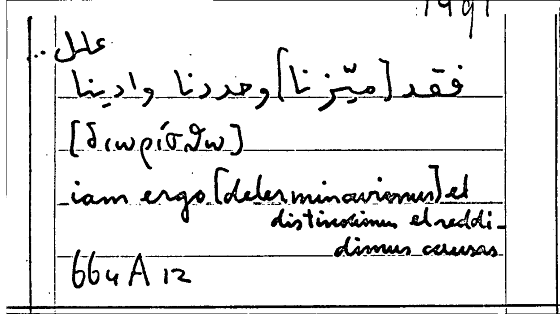 1991
علل
فقد [ميّزنا] وحددنا وادينا
[διωρίσθω]
iam ergo [determinavimus] et
distinximus et reddi-
dimus causas
664 A 12